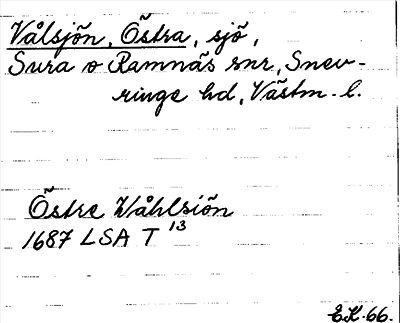 Vålsjön, Östra, sjö,
Sura o Ramnäs snr, Snev-
ringe hd, Västm. l.
Östre Wåhlsiön
1687 LSA T 13
E.K. 66.